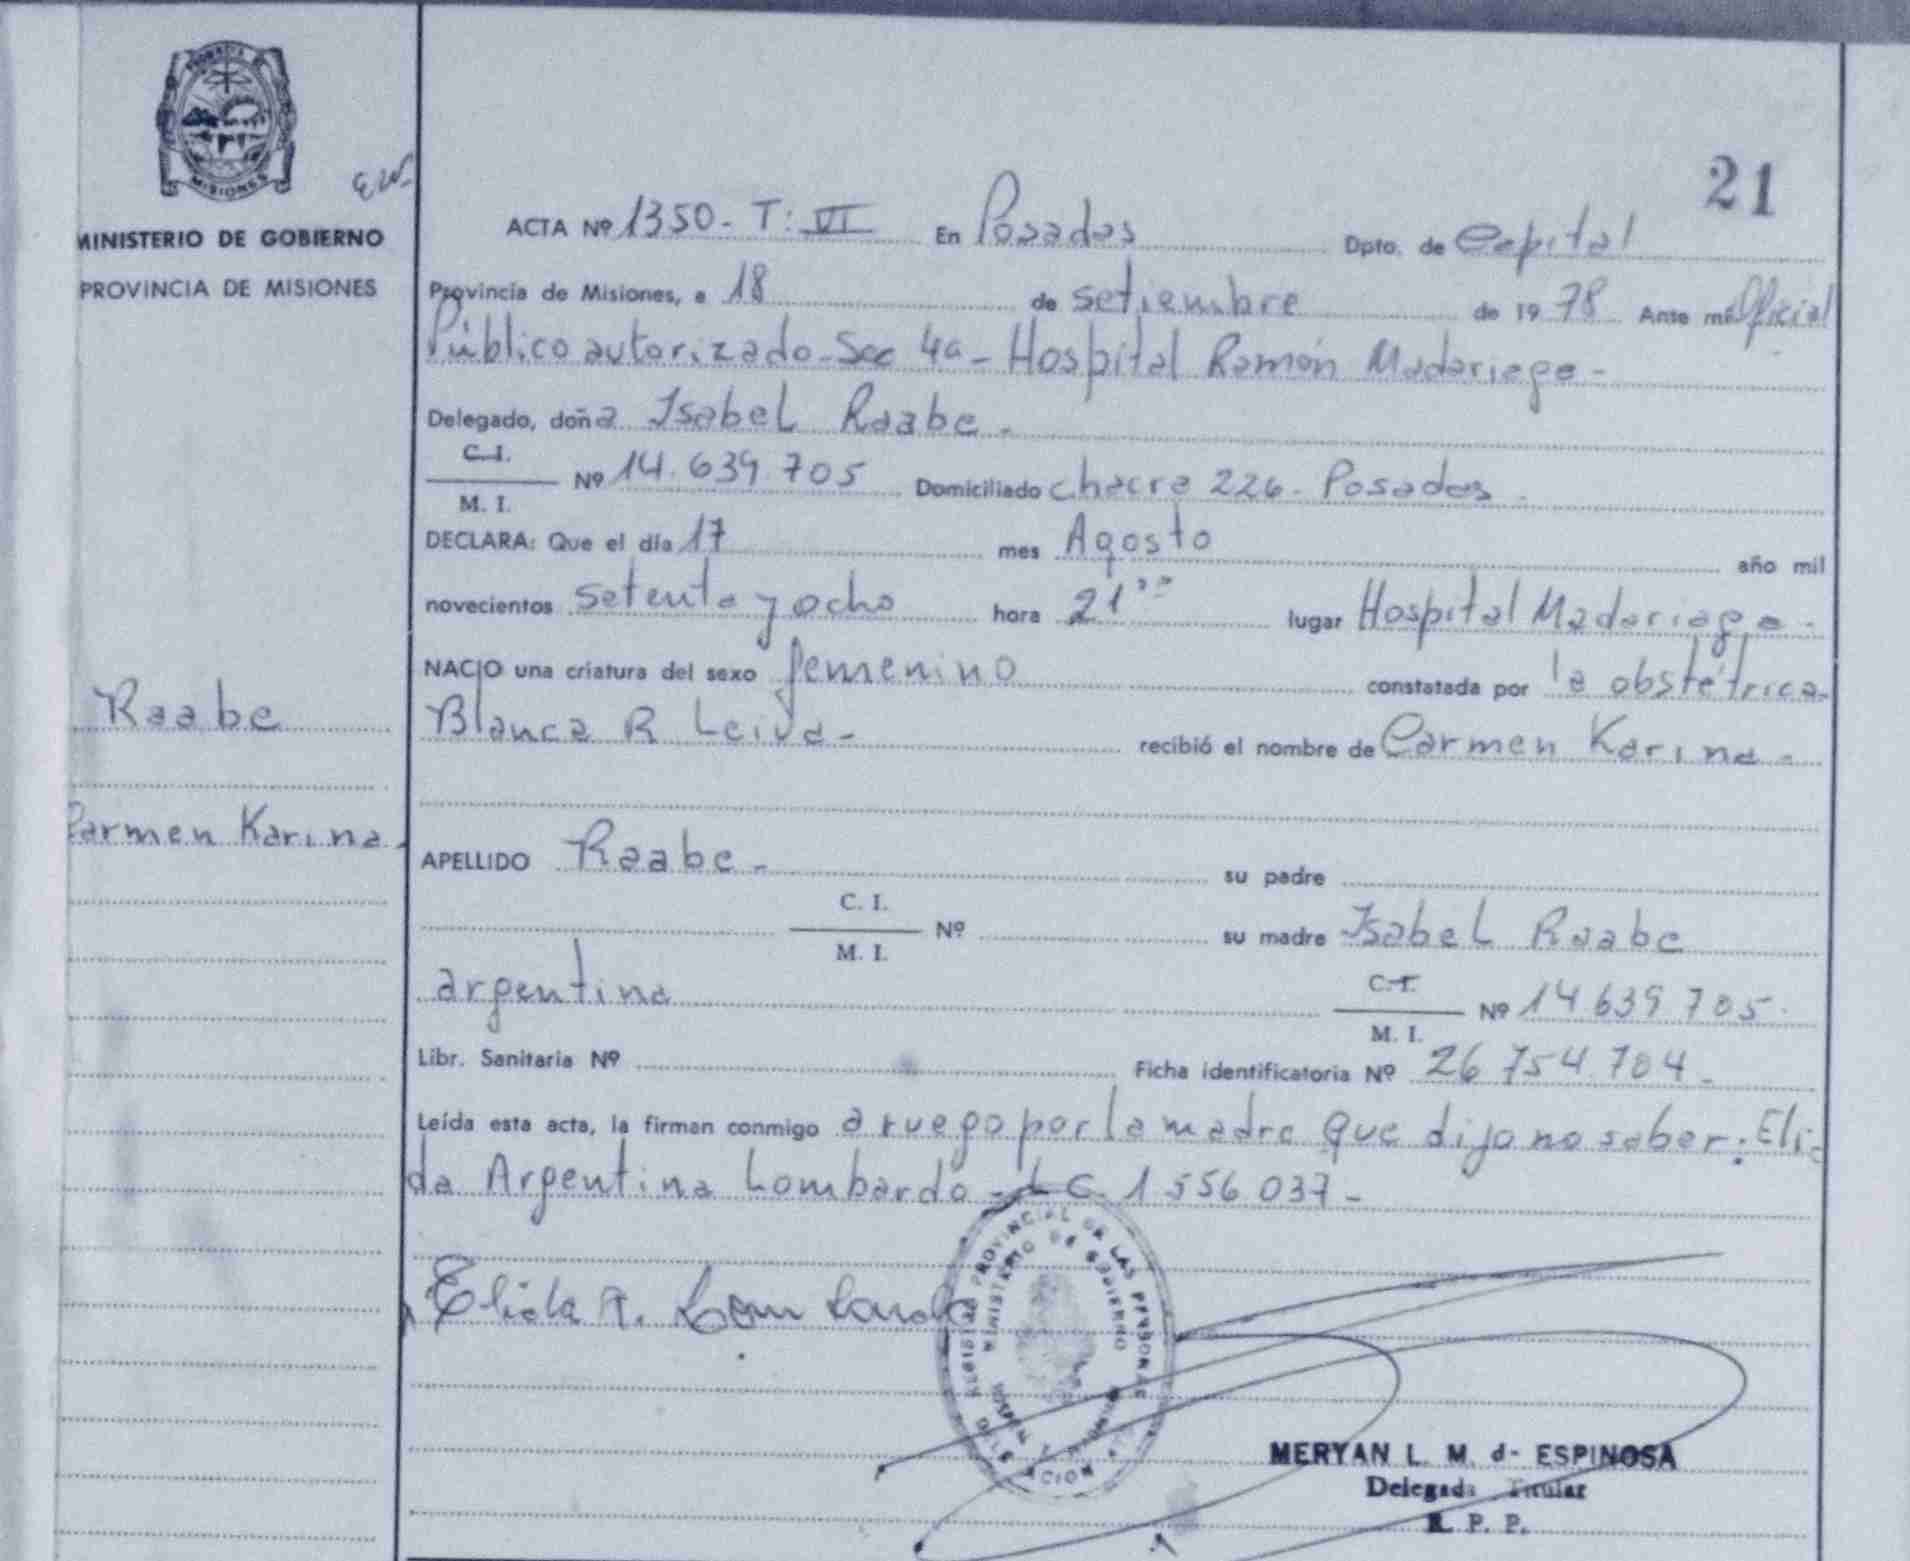 MISIONES
MINISTERIO DE GOBIERNO
PROVINCIA DE MISIONES
21
ACTA Nº 1350 - T: VI En Posadas Dpto. de Capital
Provincia de Misiones, a 18 de setiembre de 1978 Ante mí Oficial
Público autorizado - Sec 4a - Hospital Ramón Madariaga -
Delegado, doña Isabel Raabe -
C. I.
Nº 14.639.705 Domiciliado chacra 226 - Posadas -
M. I.
DECLARA: Que el día 17 mes Agosto año mil
novecientos setenta y ocho hora 21 lugar Hospital Madariaga -
NACIO una criatura del sexo femenino constatada por la obstétrica
Raabe
Blanca R Leiva - recibió el nombre de Carmen Karina -
Carmen Karina
APELLIDO Raabe - su padre
C. I.
Nº su madre Isabel Raabe
M. I.
argentina C. I. Nº 14 639 705 -
M. I.
Libr. Sanitaria Nº Ficha identificatoria Nº 26 754 704 -
Leída esta acta, la firman conmigo a ruego por la madre que dijo no saber: Eli
da Argentina Lombardo - LC 1 556 037 -
Elida A. Lombardo
REGISTRO PROVINCIAL DE LAS PERSONAS
MINISTERIO DE GOBIERNO
MERYAN L. M. de ESPINOSA
Delegada Titular
R. P. P.